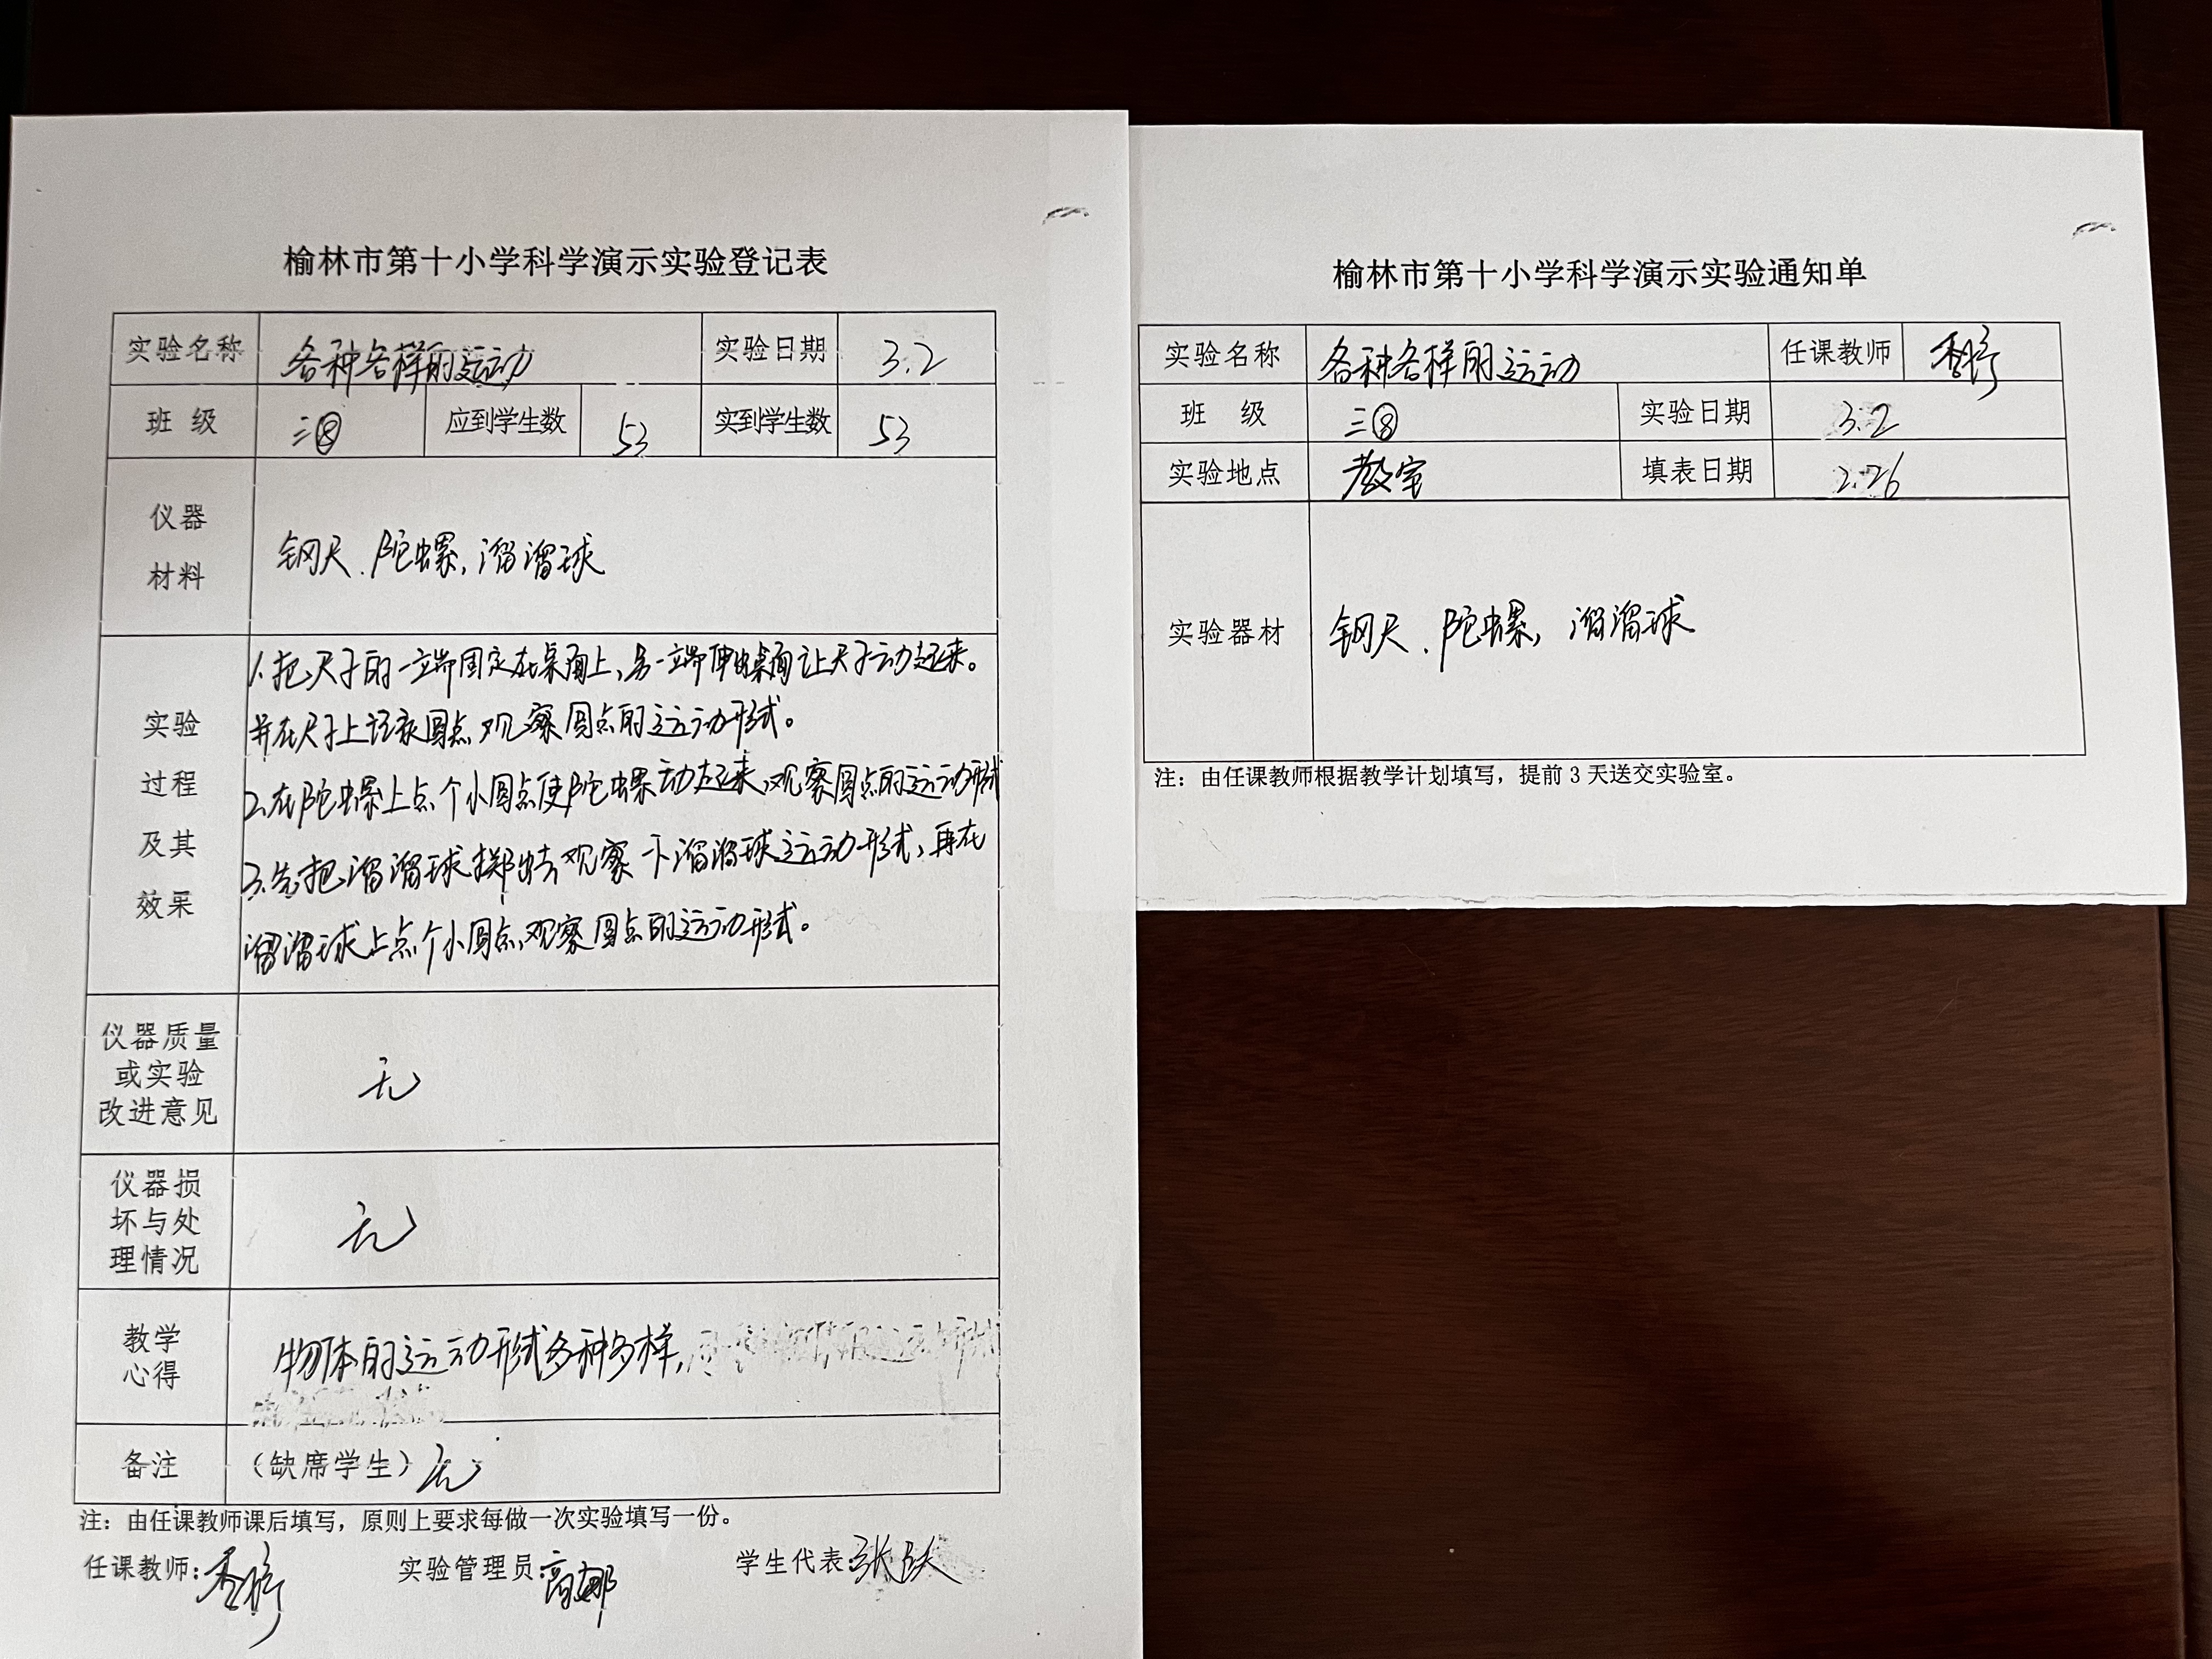 榆林市第十小学科学演示实验登记表
实验名称 各种各样的运动 实验日期 3.2
班 级 三⑧ 应到学生数 53 实到学生数 53
仪器
材料
钢尺、陀螺,溜溜球
实验
过程
及其
效果
1.把尺子的一端固定在桌面上,另一端伸出桌面让尺子动起来。
并在尺子上记录圆点,观察圆点的运动形式。
2.在陀螺上点个小圆点使陀螺动起来,观察圆点的运动形式
3.先把溜溜球掷出去,观察一下溜溜球运动形式,再在
溜溜球上点个小圆点,观察圆点的运动形式。
仪器质量
或实验
改进意见
无
仪器损
坏与处
理情况
无
教学
心得
物体的运动形式多种多样,
备注 (缺席学生) 无
注:由任课教师课后填写,原则上要求每做一次实验填写一份。
任课教师: 实验管理员:高娜 学生代表:张
榆林市第十小学科学演示实验通知单
实验名称 各种各样的运动 任课教师
班 级 三⑧ 实验日期 3.2
实验地点 教室 填表日期 2.26
实验器材 钢尺、陀螺,溜溜球
注:由任课教师根据教学计划填写,提前 3 天送交实验室。